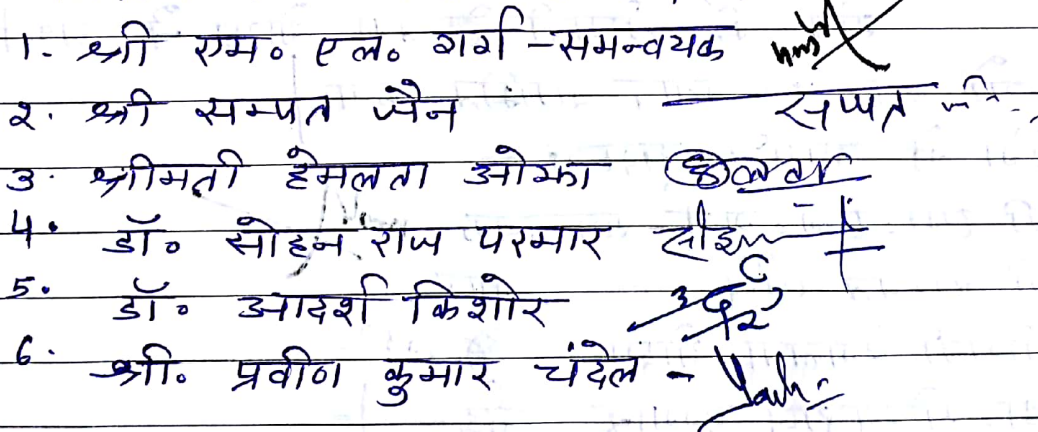 1. श्री एम० एल० गर्ग - समन्वयक
२. श्री सम्पत जैन सम्पत
3. श्रीमती हेमलता ओझा
4. डॉ० सोहन राज परमार
5. डॉ० आदर्श किशोर
6. श्री. प्रवीण कुमार चंदेल -